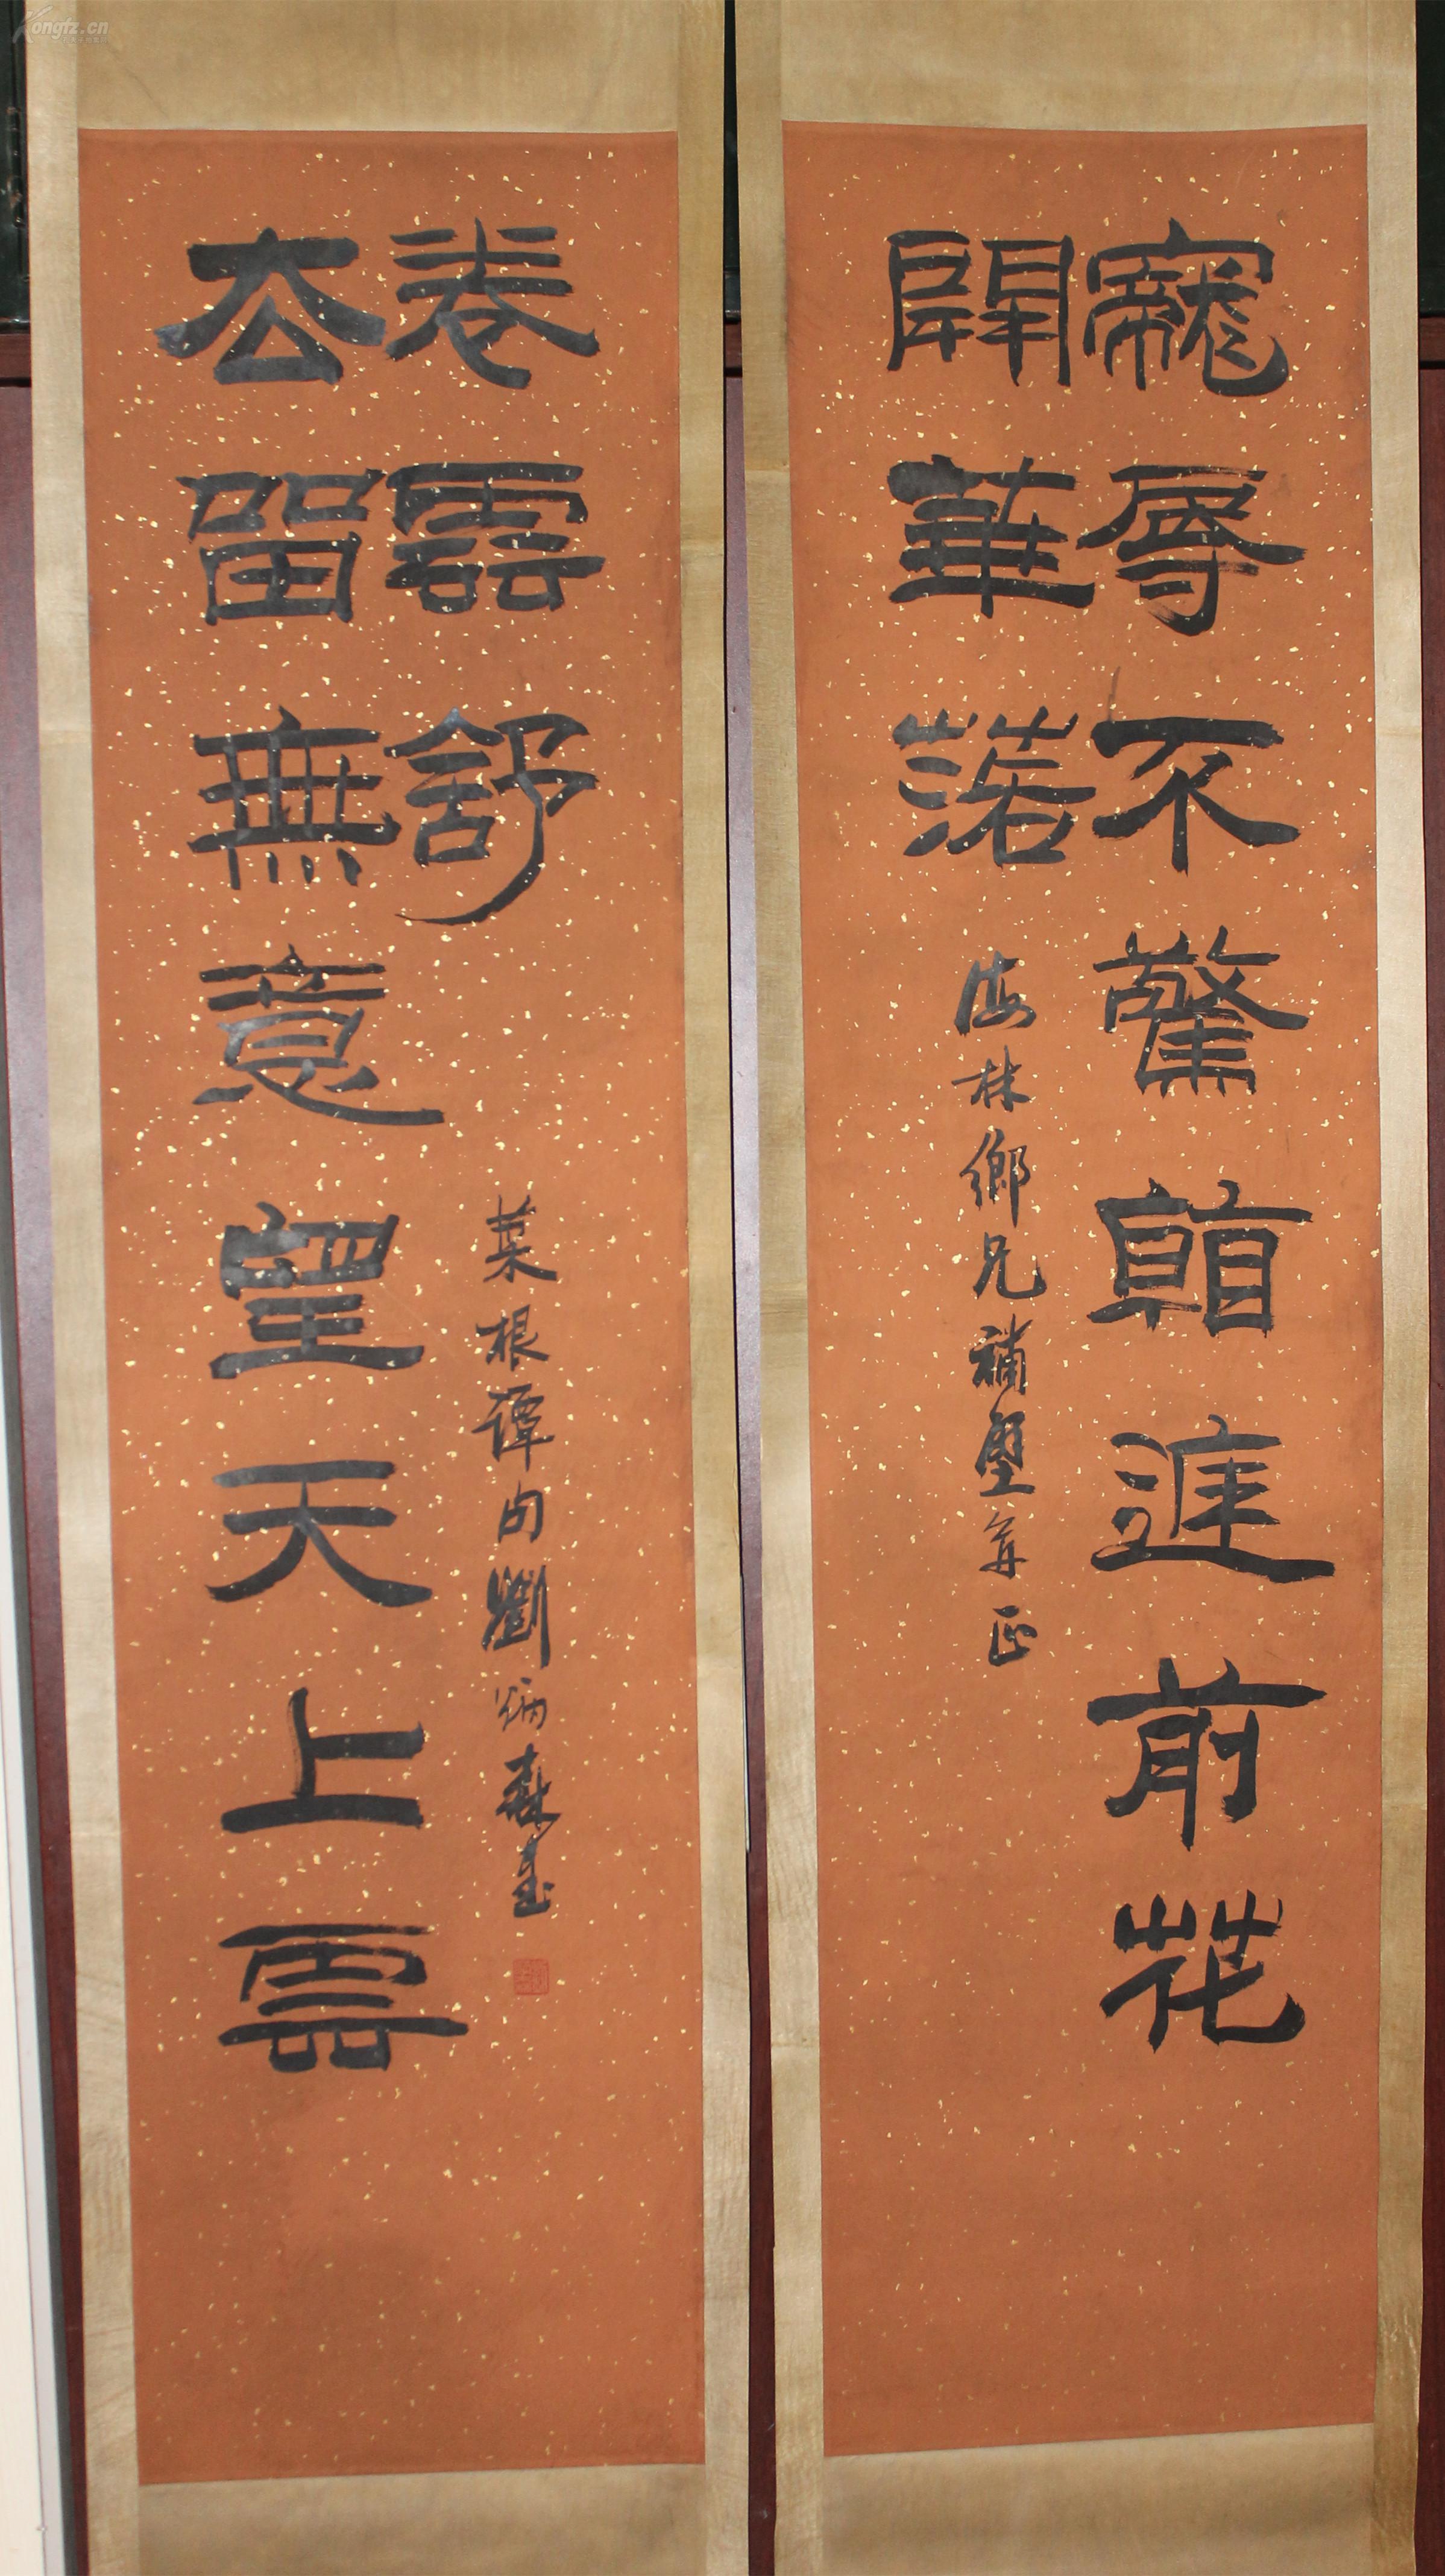 寵辱不驚庭前花
開華落
海林鄉兄補壁并正
去留無意望天上雲
卷雲舒
菜根譚句劉炳森書
Kongfz.cn